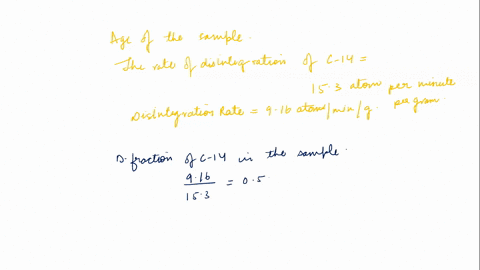 Age of the sample.
The rate of disintegration of C-14 =
15.3 atom per minute
per gram.
Disintegration Rate = 9.16 atoms/min/g.
D. fraction of C-14 in the sample.
9.16
15.3
= 0.5